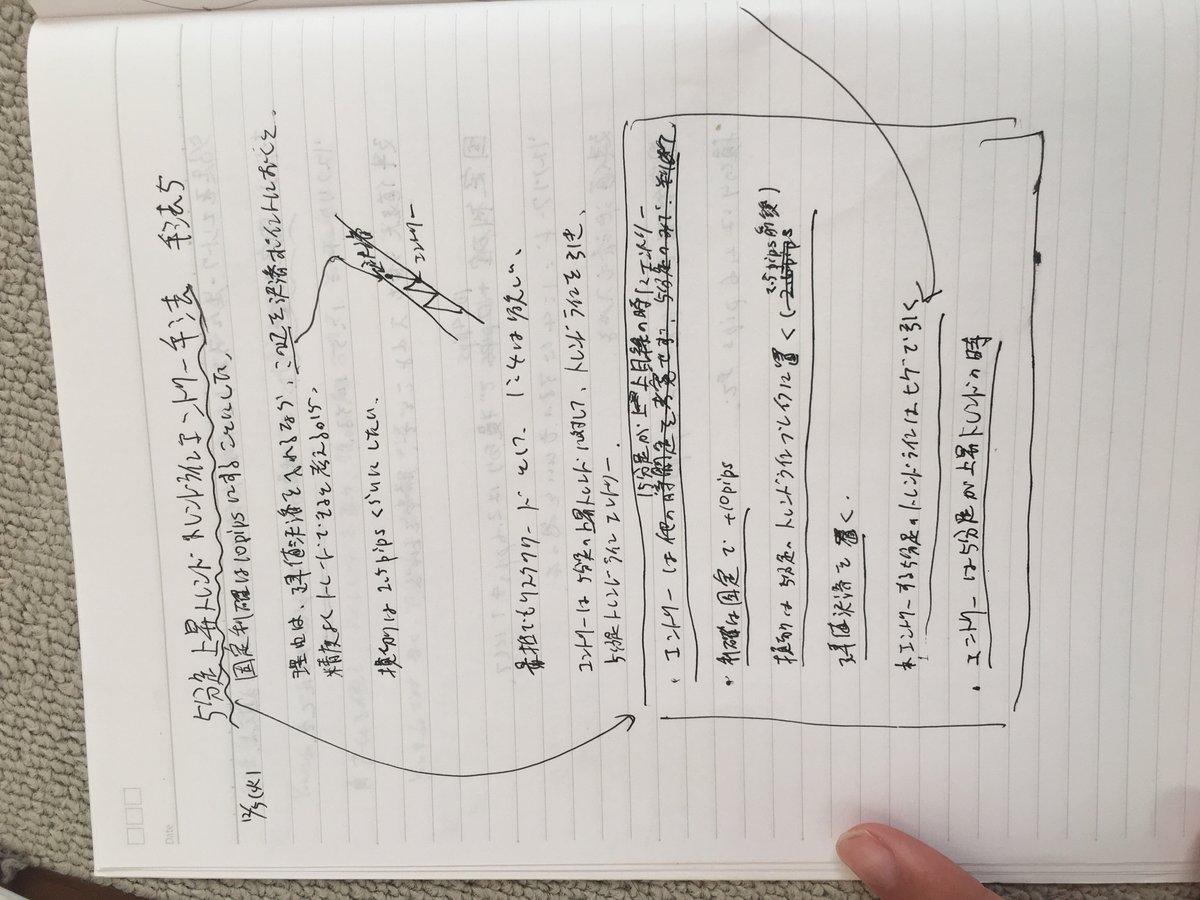 Date
5分足上昇トレンド トレンドラインエントリー手法 手法5
12/5(火) 固定利確は10pipsにすることにした。
理由は、建値決済を入れるなら、この辺を決済ポイントにおくと、
精度よくトレードできると考えるから。
決済
エントリー
損切は2.5pipsぐらいにしたい。
最低でもリスクリワードとして、1:4は狙えるし、
エントリーは5分足の上昇トレンドに対して、トレンドラインを引き、
5分足トレンドラインでエントリー。
15分足が上昇目線の時にエントリー
・エントリーは他の時間足を考慮せず、5分足のみで判断
・利確は固定で+10pips
2.5pips前後)
損切は5分足のトレンドラインブレイクに置く(-2.5pips
建値決済を置く。
※エントリーする5分足のトレンドラインはヒゲで引く
・エントリーは5分足が上昇トレンドの時